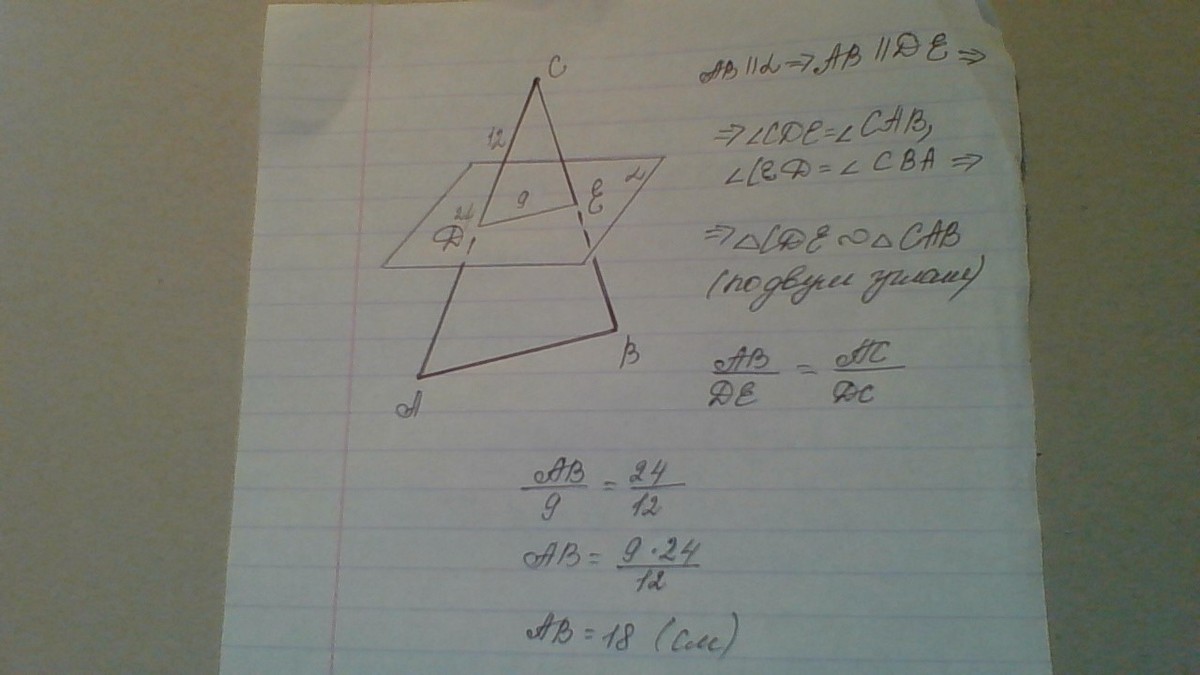 C
12
9
α
E
24
D
B
A
AB || α ⇒ AB || DE ⇒
⇒ ∠CDE = ∠CAB,
∠CED = ∠CBA ⇒
⇒ △CDE ∾ △CAB
(по двум углам)
AB/DE = AC/DC
AB/9 = 24/12
AB = 9·24/12
AB = 18 (см)